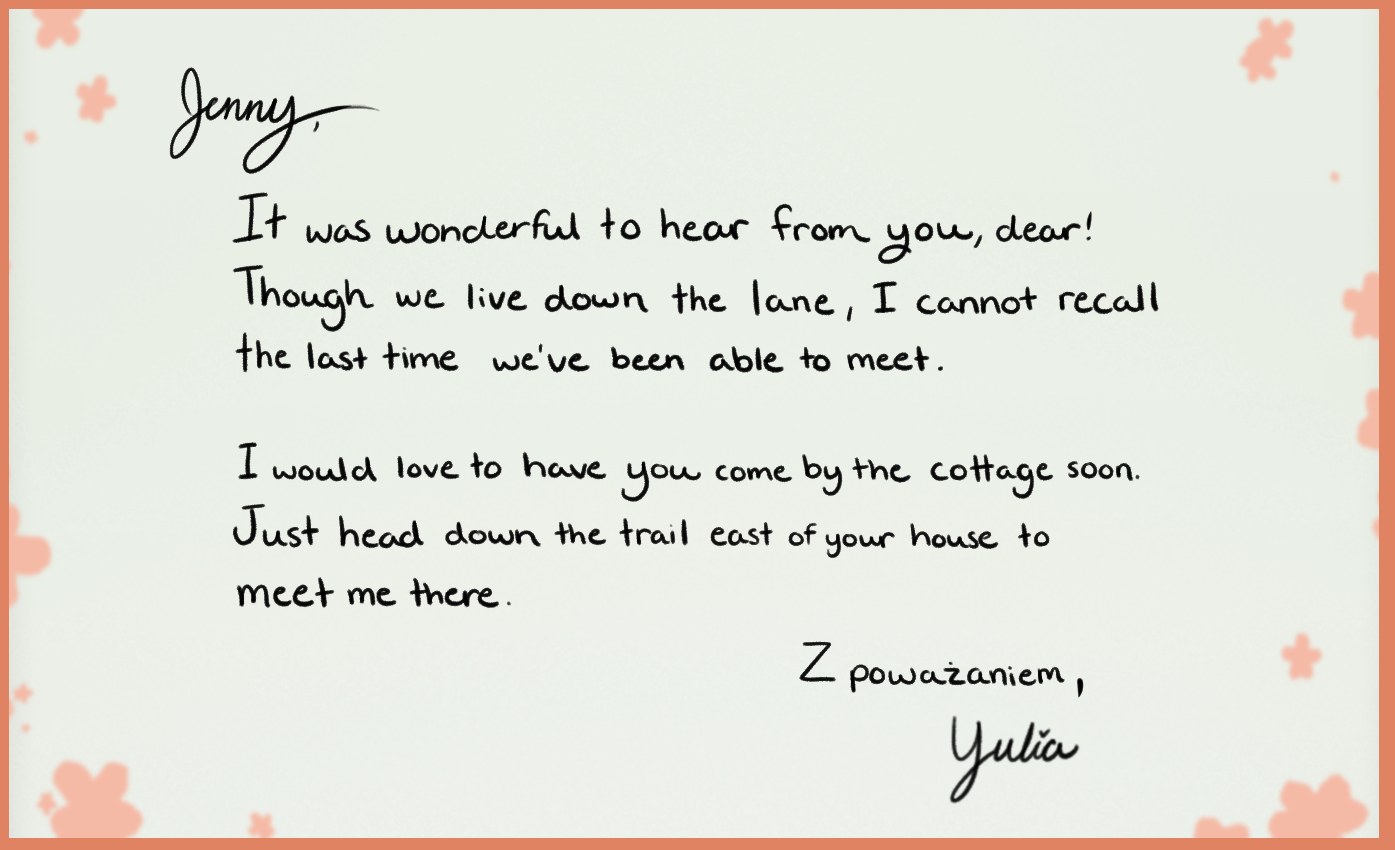 Jenny,
It was wonderful to hear from you, dear!
Though we live down the lane, I cannot recall
the last time we've been able to meet.
I would love to have you come by the cottage soon.
Just head down the trail east of your house to
meet me there.
Z poważaniem,
Yulia